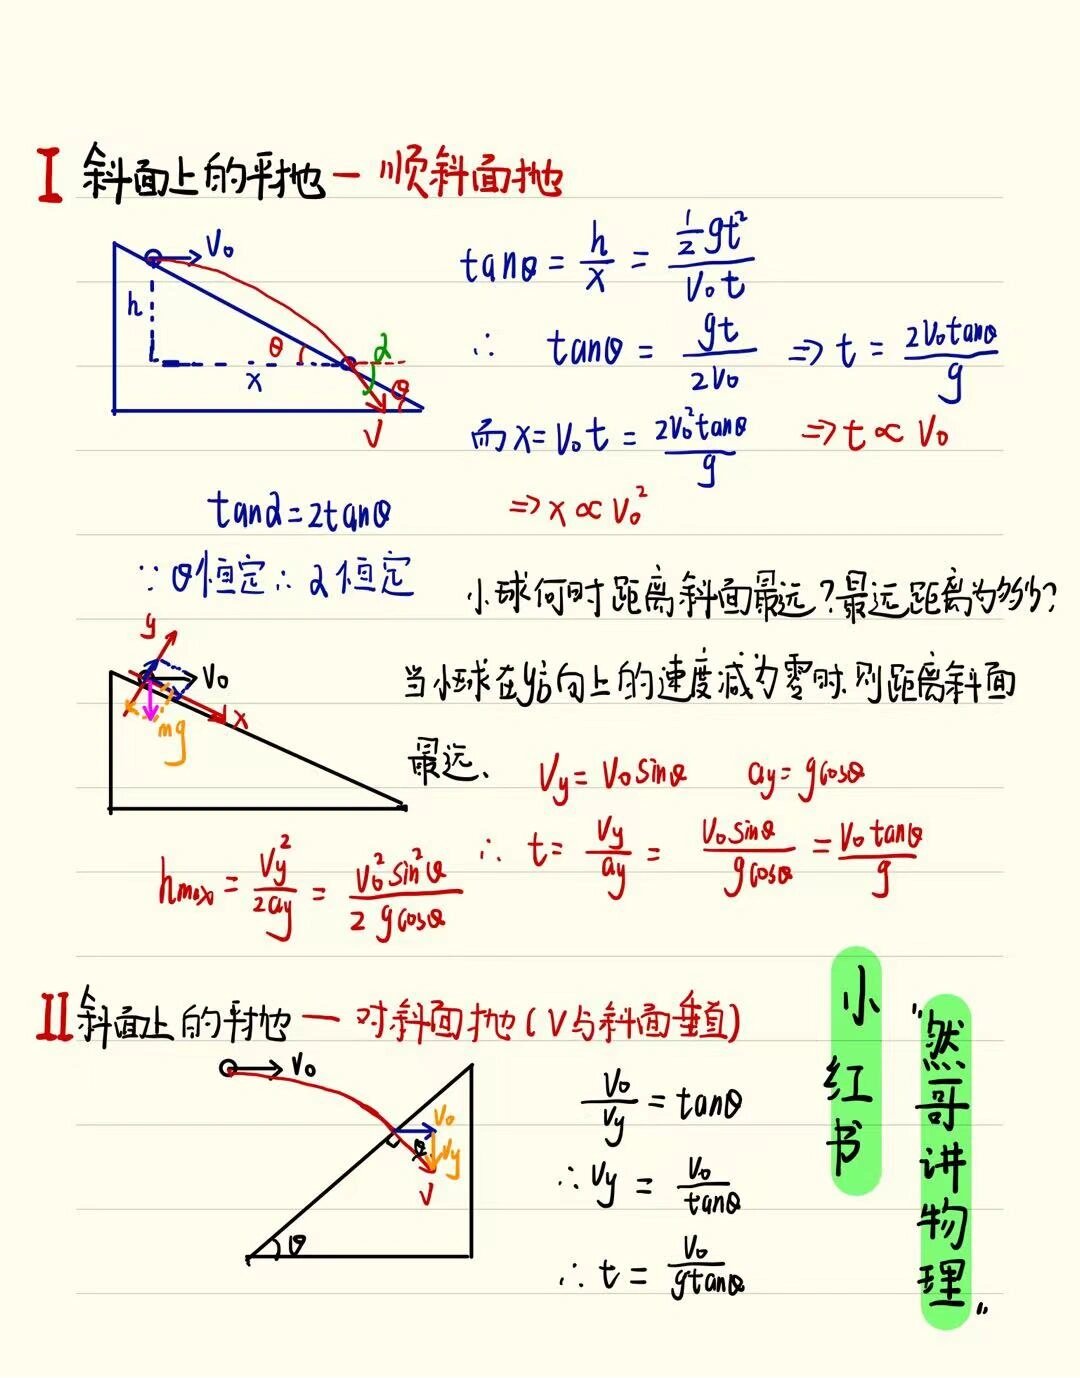 I 斜面上的平抛一顺斜面抛
V₀
h
θ
x
α
θ
V
tanθ = h/x = ½gt²/V₀t
∴ tanθ = gt/2V₀ ⇒ t = 2V₀tanθ/g
而x=V₀t = 2V₀²tanθ/g ⇒ t ∝ V₀
tanα=2tanθ ⇒ x ∝ V₀²
∵ θ恒定∴α恒定
小球何时距离斜面最远?最远距离为多少?
y
V₀
x
mg
当小球在y方向上的速度减为零时.则距离斜面
最远、 Vy = V₀sinθ ay = gcosθ
∴ t = Vy/ay = V₀sinθ/gcosθ = V₀tanθ/g
hmax = Vy²/2ay = V₀²sin²θ/2gcosθ
II 斜面上的平抛一对斜面抛(V与斜面垂直)
V₀
V₀
θ
Vy
V
θ
V₀/Vy = tanθ
∴ Vy = V₀/tanθ
∴ t = V₀/gtanθ
小红书
"然哥讲物理"